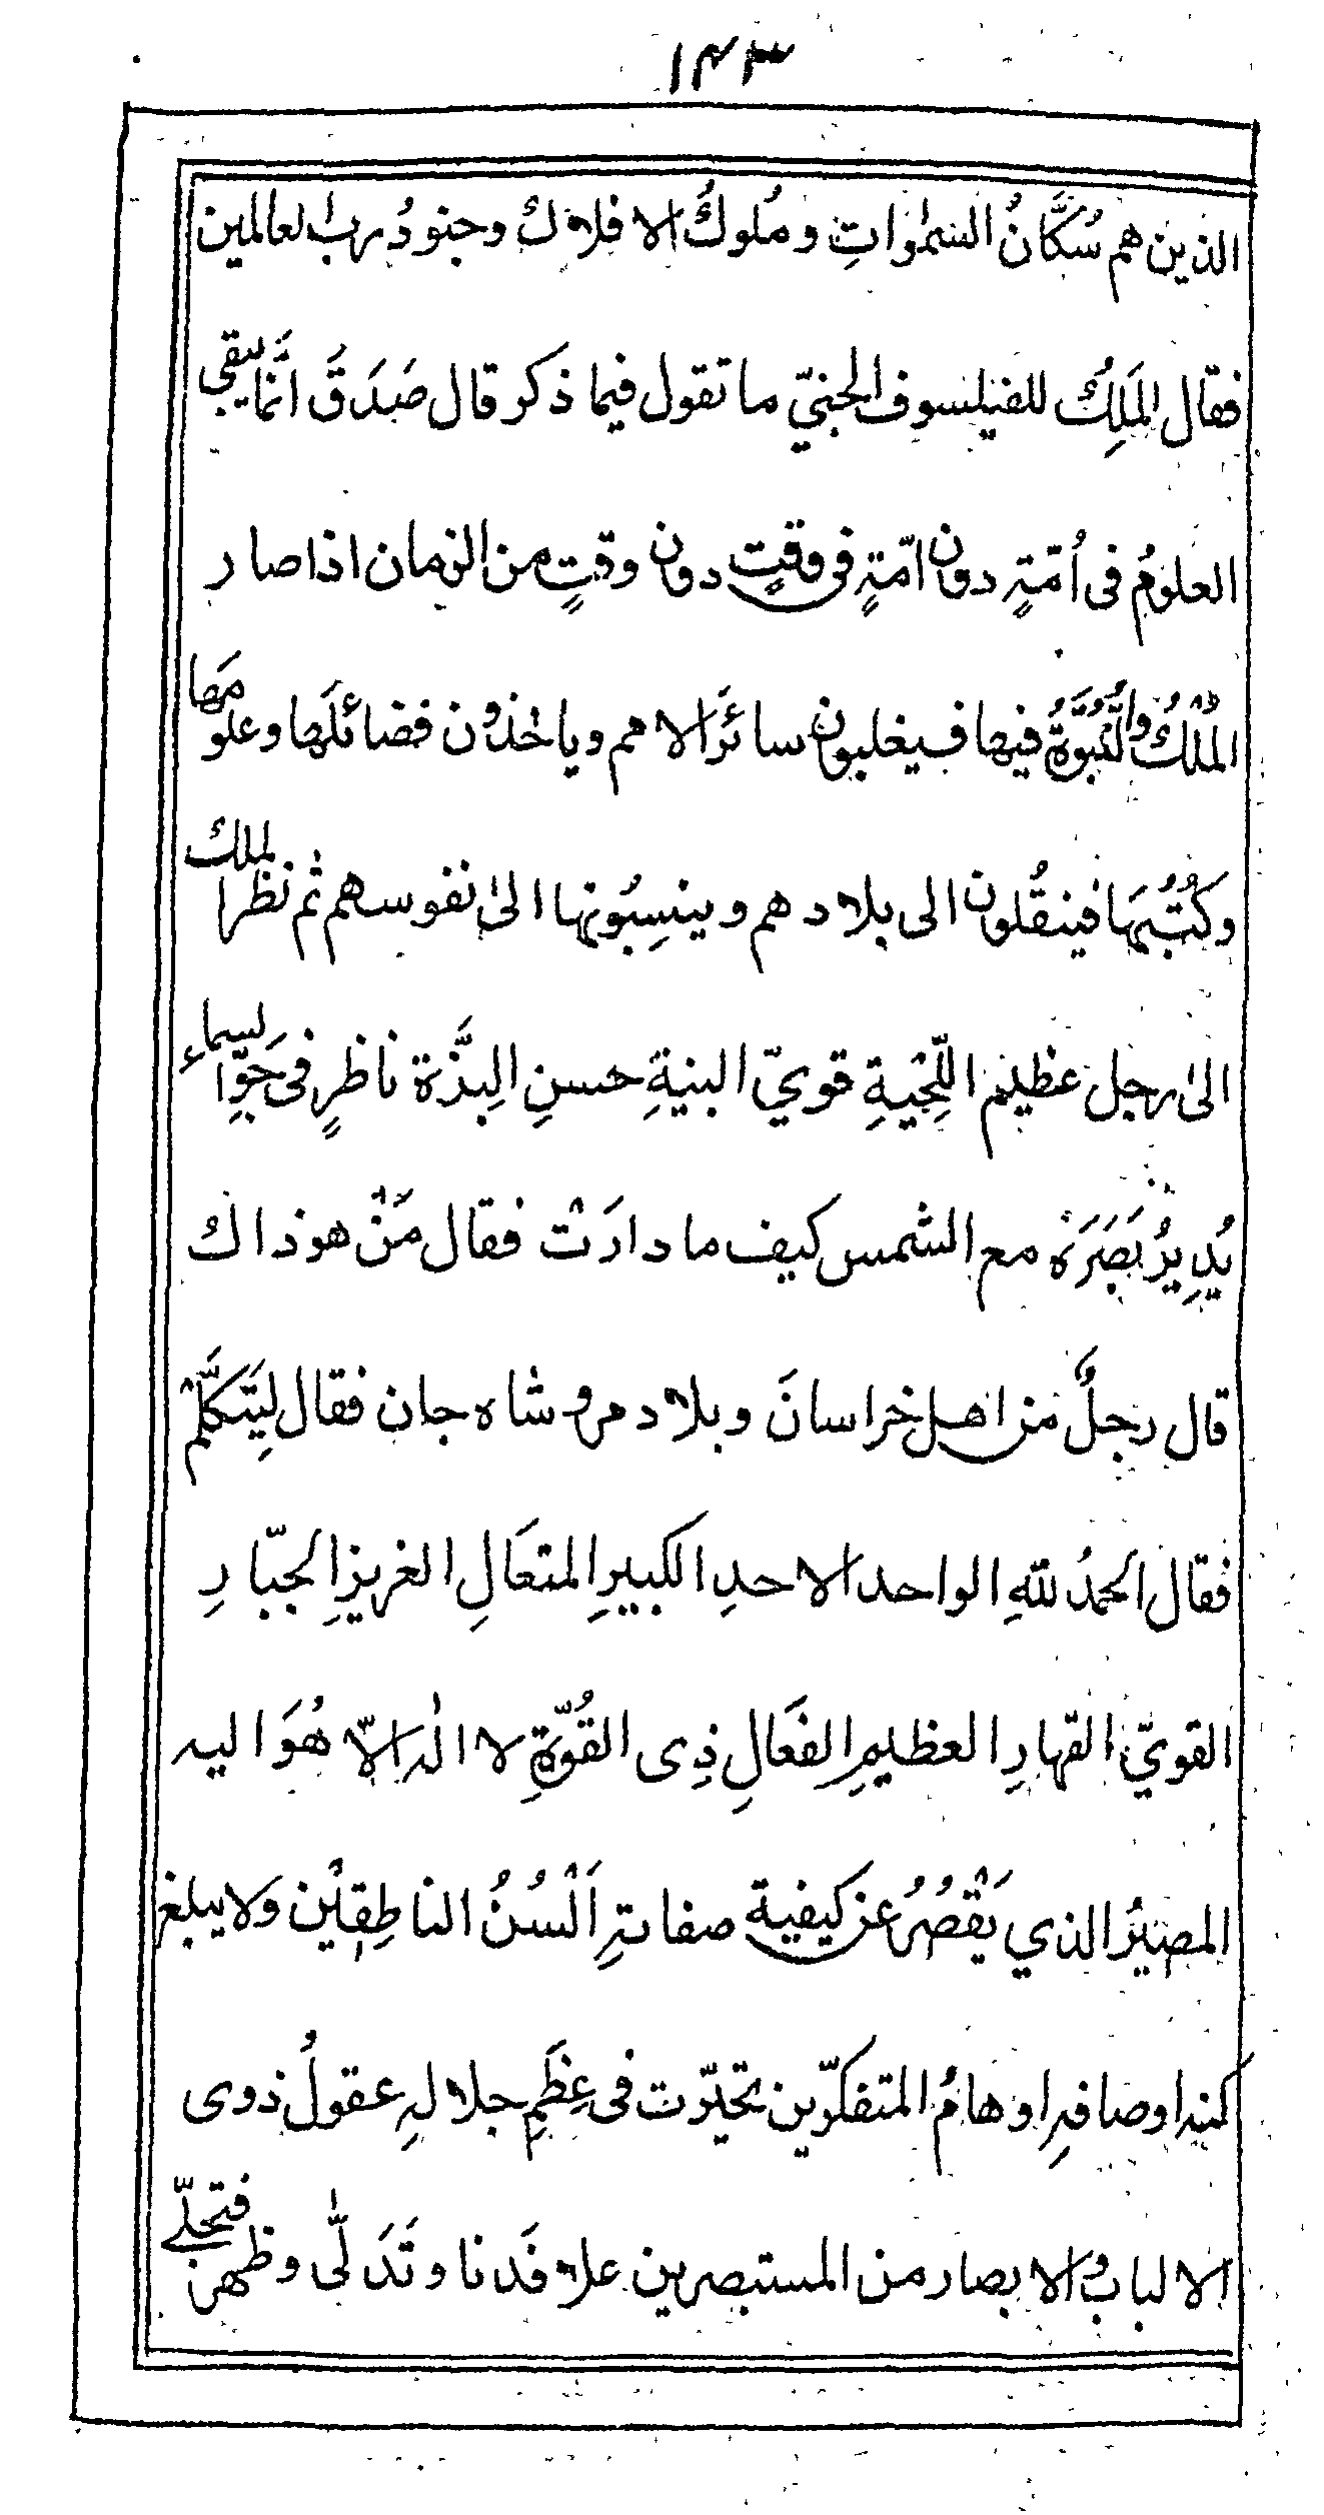 ١٤٣
الذين هم سُكَّانُ السموات ِ و مُلوكُ الافلاك وجنودُ رب العالمين
فقال المَلِكُ للفيلسوف الجنيّ ما تقول فيما ذكر قال صَدَقَ انَّما يبقى
العلومُ فى اُمّةٍ دون امّةٍ فى وقتٍ دون وقتٍ من الزمان اذا صار
المُلْكُ والنُّبُوَّةُ فيها فيغلبون سائرَ الامم وياخذون فضائلَها وعلومَها
وكُتُبَها فينقُلون الى بلادهم وينسِبُونها الىٰ نفوسهم ثم نظر الملك
الىٰ رجل عظيم اللّحْيةِ قويّ البنيةِ حسنِ البِذَّة ناظرٍ فى جَوِّ السماء
يُدِيرُ بَصَرَهُ مع الشمس كيف ما دارَتْ فقال مَنْ هو ذاك
قال رجلٌ من اهل خراسانَ وبلاد مروشاه جان فقال لِيَتَكَلَّمْ
فقال الحمدُ للّٰهِ الواحد الاحدِ الكبيرِ المتعَالِ العزيزِ الجبّارِ
القويّ القهارِ العظيمِ الفعَالِ ذِى القُوّةِ لا الٰه الّا هُوَ اليه
المصيرُ الذي يَقْصُرُ عن كيفية صفاتهِ اَلْسُنُ الناطِقِيْن وَلا يبلغ
كنه اوصافهِ اوهامُ المتفكرّين تحيّرت فى عِظَمِ جلالهِ عقولُ ذوى
الالباب والابصار من المستبصرين علا فَدنا وتَدَلّٰى وظهر فتجلّے